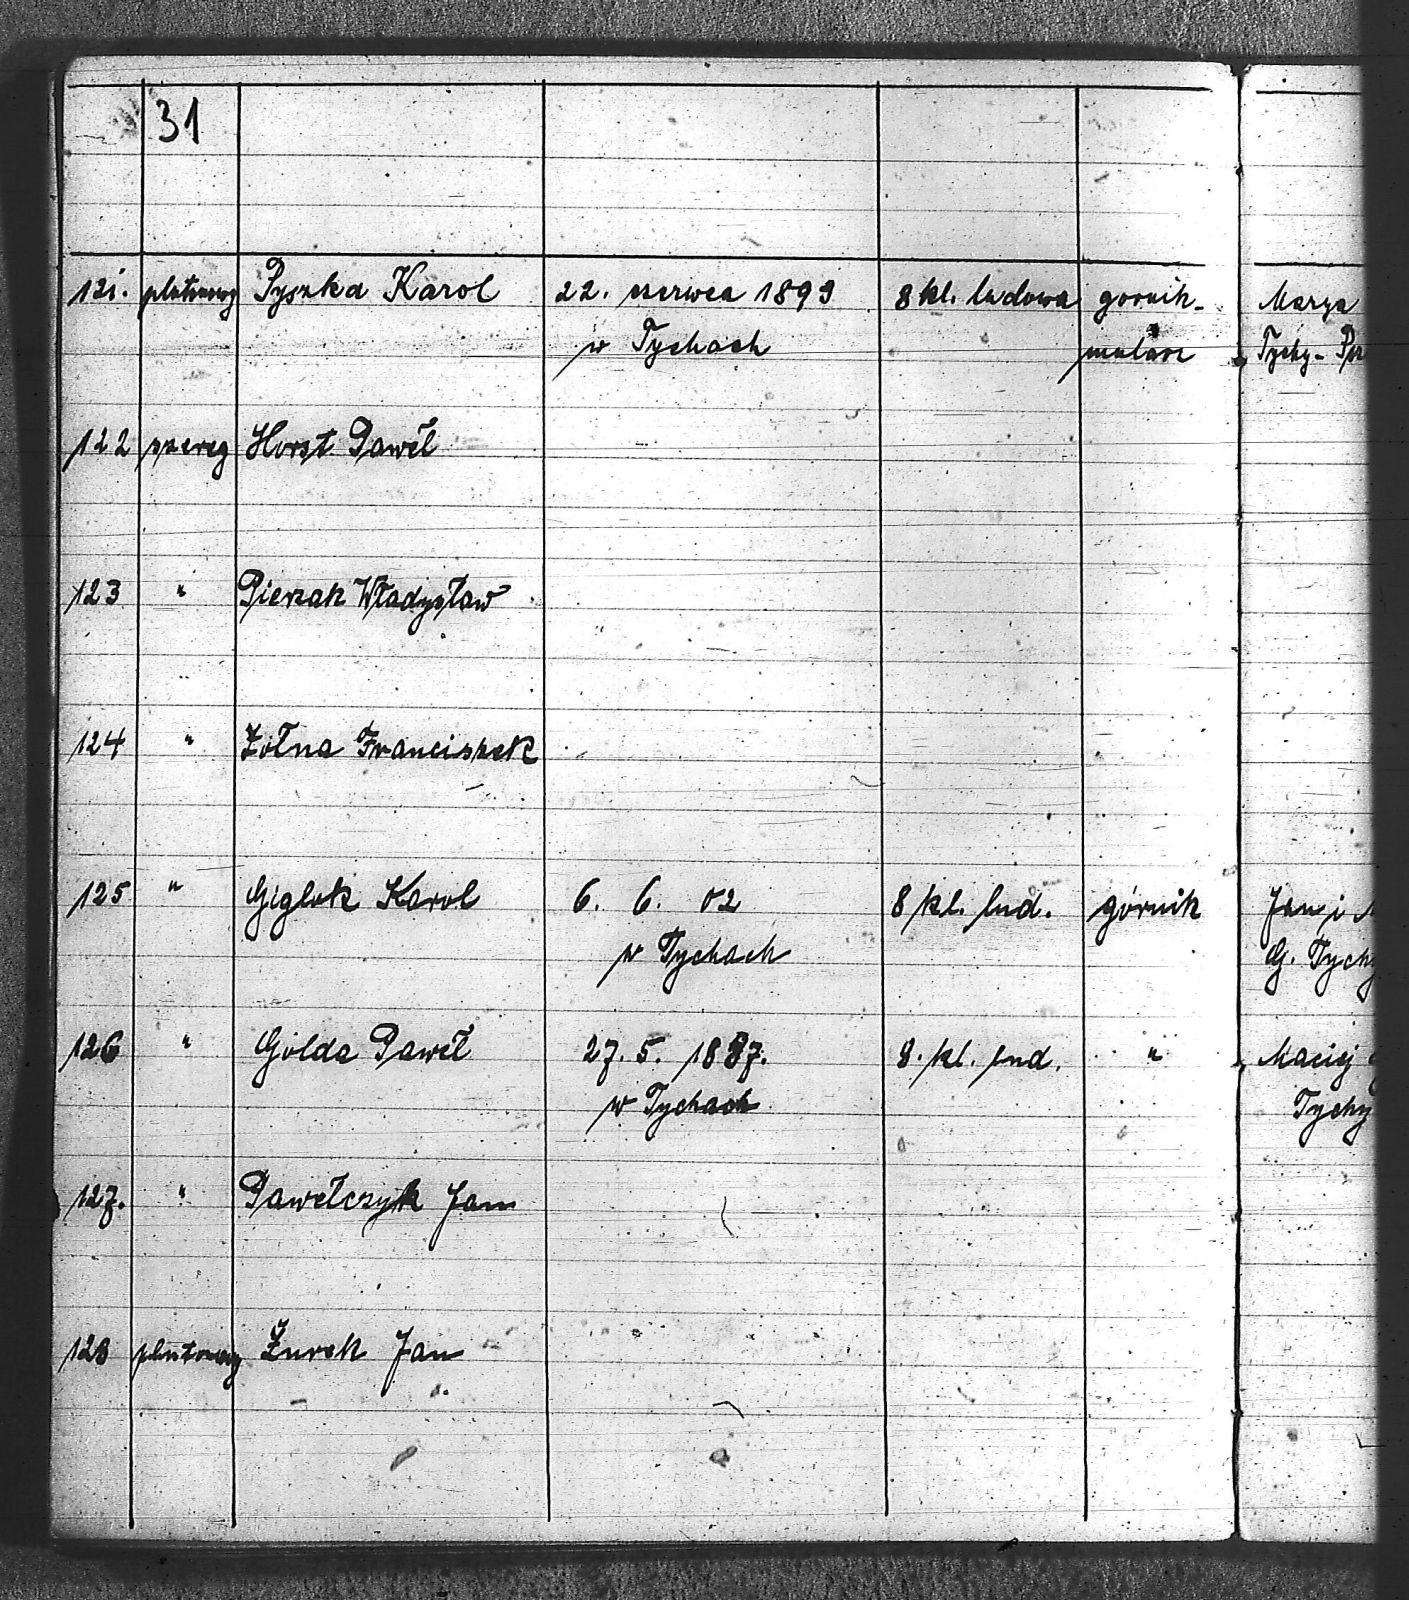 31
121. plutonowy Pyszka Karol 22. czerwca 1899 8 kl. ludowa gornik- Marya
w Tychach malarz Tychy-
122 szereg Horst Paweł
123 " Pierzak Władysław
124 " Żołna Franciszek
125 " Giglok Karol 6. 6. 02 8 kl. lud. górnik Jan i
w Tychach G. Tychy
126 " Golda Paweł 27. 5. 1887. 8. kl. lud. " Maciej
w Tychach Tychy
127. " Pawełczyk Jan
128 plutonowy Żurek Jan